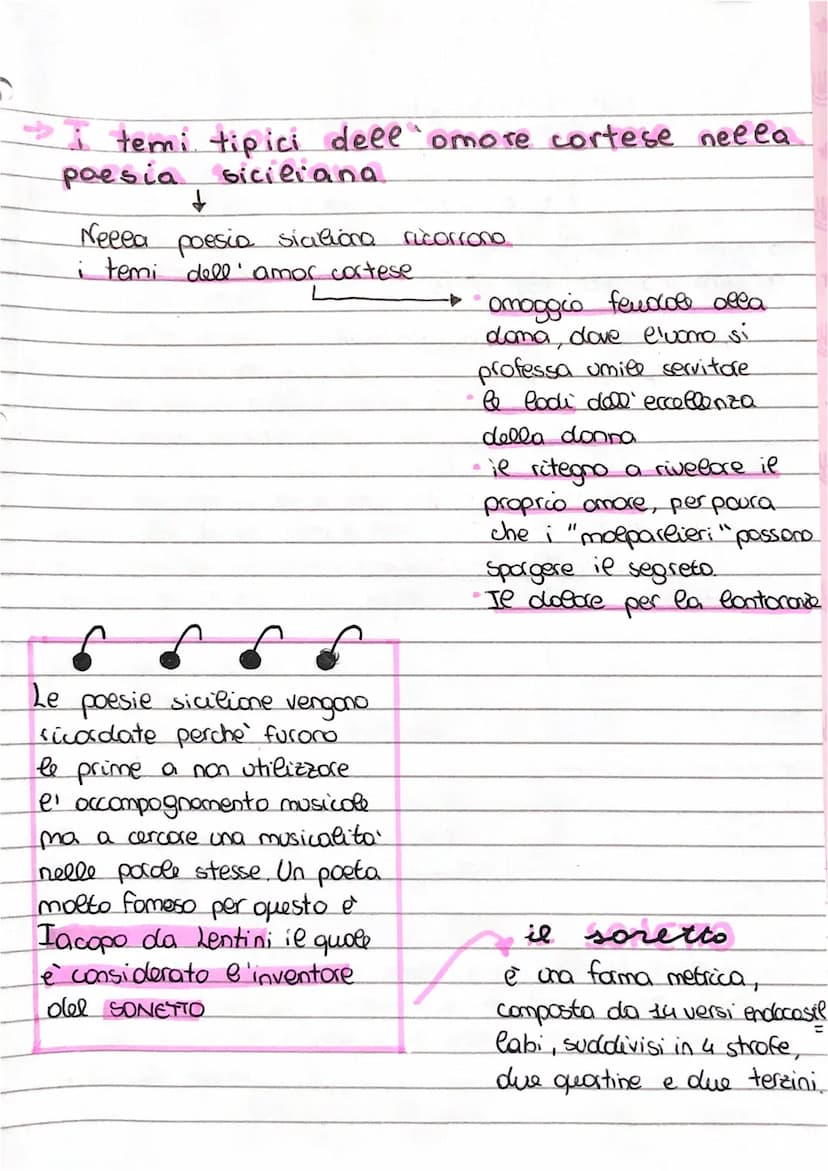 → I temi tipici dell'amore cortese nella
poesia siciliana
↓
Nella poesia siciliana ricorrono
i temi dell'amor cortese
• omaggio feudale alla
dama, dove l'uomo si
professa umile servitore
• le lodi dell'eccellenza
della donna
• il ritegno a rivelare il
proprio amore, per paura
che i "malparlieri" possano
spargere il segreto.
• Il dolore per la lontananza
Le poesie siciliane vengono
ricordate perchè furono
le prime a non utilizzare
l'accompagnamento musicale
ma a cercare una musicalità
nelle parole stesse. Un poeta
molto famoso per questo è
Iacopo da Lentini il quale
è considerato l'inventore
del SONETTO
il sonetto
è una forma metrica,
composta da 14 versi endecasil=
labi, suddivisi in 4 strofe,
due quartine e due terzini.